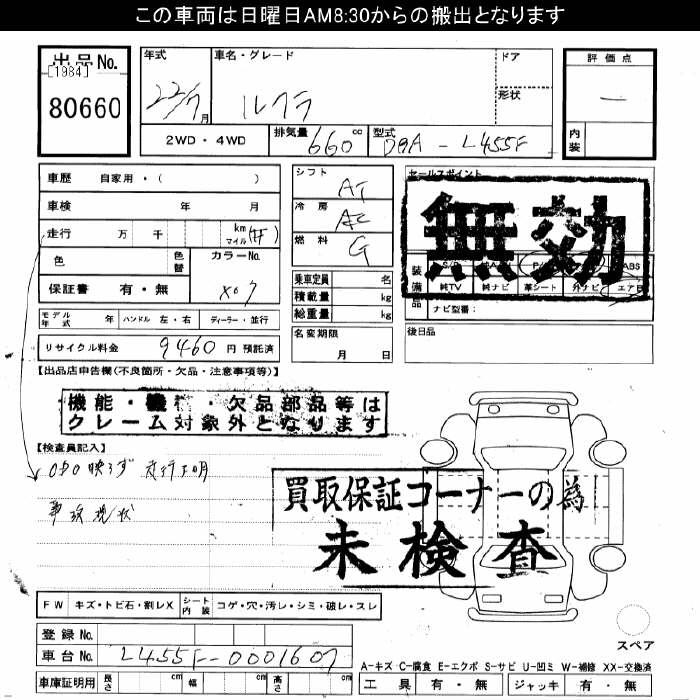 この車両は日曜日AM8:30からの搬出となります
出品No.
[1984]
80660
年式 車名・グレード ドア 評価点
22/7月 ルクラ 形状 ー
2WD・4WD 排気量 660cc 型式 DBA-L455F 内装
車歴 自家用・( ) シフト AT セールスポイント
車検 年 月 冷房 AC 無効
走行 万 千 km マイル 燃料 G
色 色替 カラーNo. X07
装備品 ABS
乗車定員 名 純TV 純ナビ 革シート 外ナビ エアB
保証書 有・無 積載量 kg
ナビ型番:
モデル年式 年 ハンドル 左・右 ディーラー・並行 総重量 kg
後日品
リサイクル料金 9460 円 預託済 名変期限 月 日
【出品店申告欄(不良箇所・欠品・注意事項等)】
機能・機 ・欠品部品等は
クレーム対象外となります
【検査員記入】
ODO映らず 走行不明
買取保証コーナーの為
事故現状
未検査
FW キズ・トビ石・割レX シート内装 コゲ・穴・汚レ・シミ・破レ・スレ
登録No.
スペア
車台No. L455F-0001607
A-キズ C-腐食 E-エクボ S-サビ U-凹ミ W-補修 XX-交換済
車庫証明用 長さ cm 幅 cm 高さ cm 工具 有・無 ジャッキ 有・無